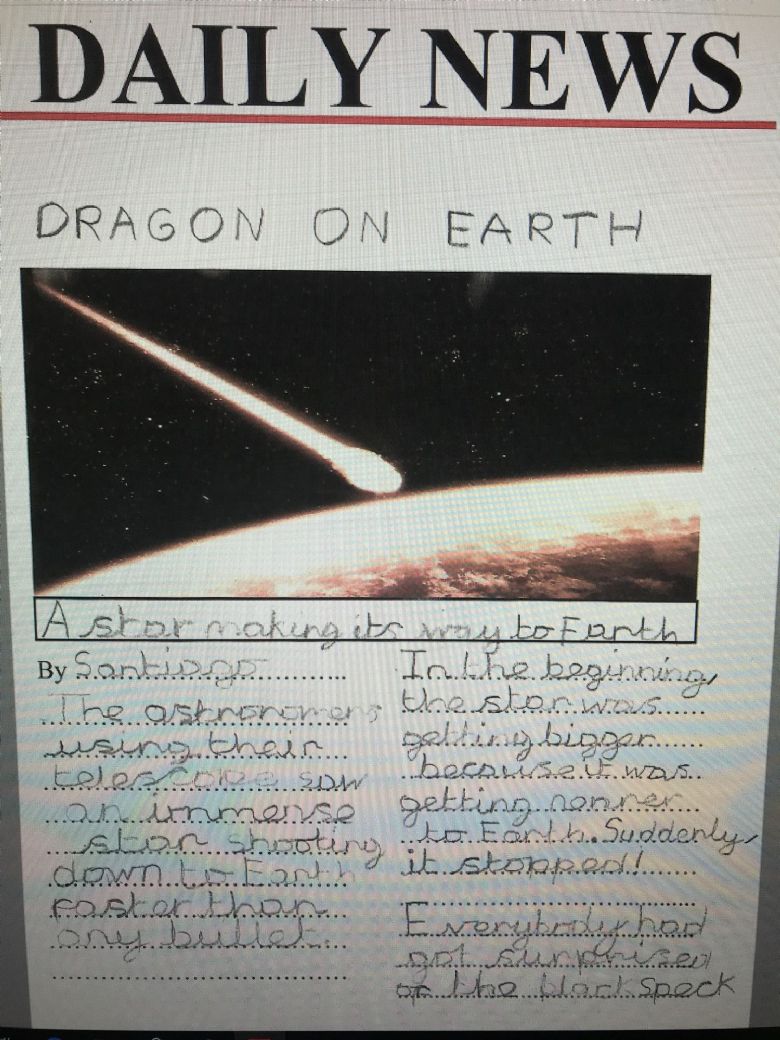 DAILY NEWS
DRAGON ON EARTH
A star making its way to Earth
By Santiago
The astronomers
using their
telescope saw
an immense
star shooting
down to Earth
faster than
any bullet.
In the beginning,
the star was
getting bigger
because it was
getting nearer
to Earth. Suddenly,
it stopped!
Everybody had
got surprised
of the black speck